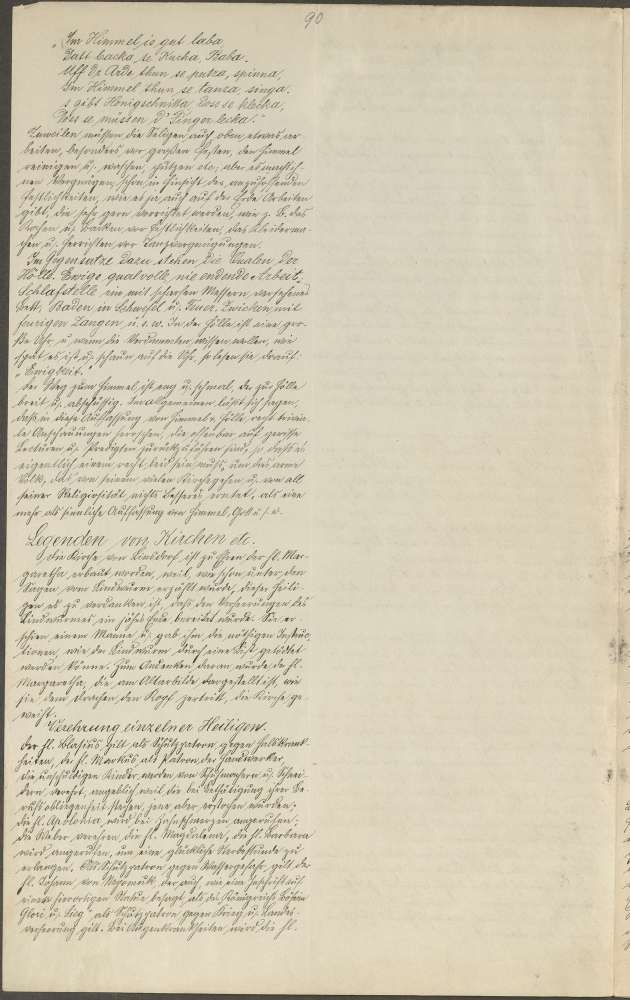 90
„Im Himmel is gut laba
Datt backa se Kucha, Baba.
Uff de Arde thun se putza, spinna,
Im Himmel thun se tanza, singa.
s gibt Honigschnitta, dass se klecka,
Dass se müssen d' Finger lecka."
Zuweilen müssen die Seligen auch oben etwas ar-
beiten, besonders vor großen Festen, den Himmel
reinigen u. waschen, putzen etc; aber es macht ih-
nen Vergnügen, schon in Hinsicht der
Festlichkeiten, wie es ja auch auf der Erde Arbeiten
gibt, die sehr gern verrichtet werden, wie z. B. das
Kochen u. Backen vor Festlichkeiten, das Kleiderma-
chen u. Herrichten vor Tanzvergnügungen.
Im Gegensatze dazu stehen die Qualen der
Hölle. Ewige qualvolle, nie endende Arbeit.
Schlafstelle ein mit scharfen Messern versehenes
Bett. Baden in Schwefel u. Feuer. Zwicken mit
feurigen Zangen u. s. w. In der Hölle ist eine gro-
ße Uhr, u. wenn die Verdammten wissen wollen, wie
spät es ist u. schaun auf die Uhr, so lesen sie darauf:
„Ewigkeit."
Der Weg zum Himmel ist eng u. schmal, der zur Hölle
breit u. abschüssig. Im allgemeinen läßt sich sagen,
daß in diese Auffassung von Himmel u. Hölle recht
Anschauungen herrschen, die offenbar auf gewisse
Lecturen u. Predigten zurückzuführen sind, so daß es
eigentlich einem recht leid sein muß, um das arme
Volk, das von seinem vielen Kirchegehen u. von all
seiner Religiosität nichts Besseres erntet, als eine
mehr als sinnliche Auffassung von Himmel, Gott u. s. w.
Legenden von Kirchen etc.
Die Kirche von Lindsdorf ist zu Ehren der hl. Mar-
garetha erbaut worden, weil, wie schon unter den
Sagen vom Lindwurm erzählt wurde, dieser Heili-
gen es zu verdanken ist, daß den Verheerungen des
Lindwurmes ein jähes Ende bereitet wurde. Sie er-
schien einem Manne u. gab ihm die nöthigen Instruc-
tionen, wie der Lindwurm durch eine List getödtet
werden könne. Zum Andenken daran wurde der hl.
Margaretha, die am Altarbilde dargestellt ist, wie
sie dem Drachen den Kopf zertritt, die Kirche ge-
weiht.
Verehrung einzelner Heiligen.
Der hl. Blasius gilt als Schutzpatron gegen Halskrank-
heiten, der hl. Markus als Patron der Handwerker,
die unschuldigen Kinder werden von Schuhmachern u. Schnei-
dern verehrt, angeblich weil die bei Bethätigung ihrer Be-
rufsobliegenheit stechen, jene aber erstochen wurden;
die hl. Apolonia wird bei Zahnschmerzen angerufen;
die Weber verehren die hl. Magdalena, die hl. Barbara
wird angerufen, um eine glückliche Sterbestunde zu
erlangen. Als Schutzpatron gegen Wassergefahr gilt der
hl. Johann von Nepomuk, der auch, wie eine Inschrift auf
einer hierortigen Statue besagt, als des Königreichs Böheim
Glori u. Sieg als Schutzpatron gegen Krieg u. Landes-
verheerung gilt. Bei Augenkrankheiten wird die hl.